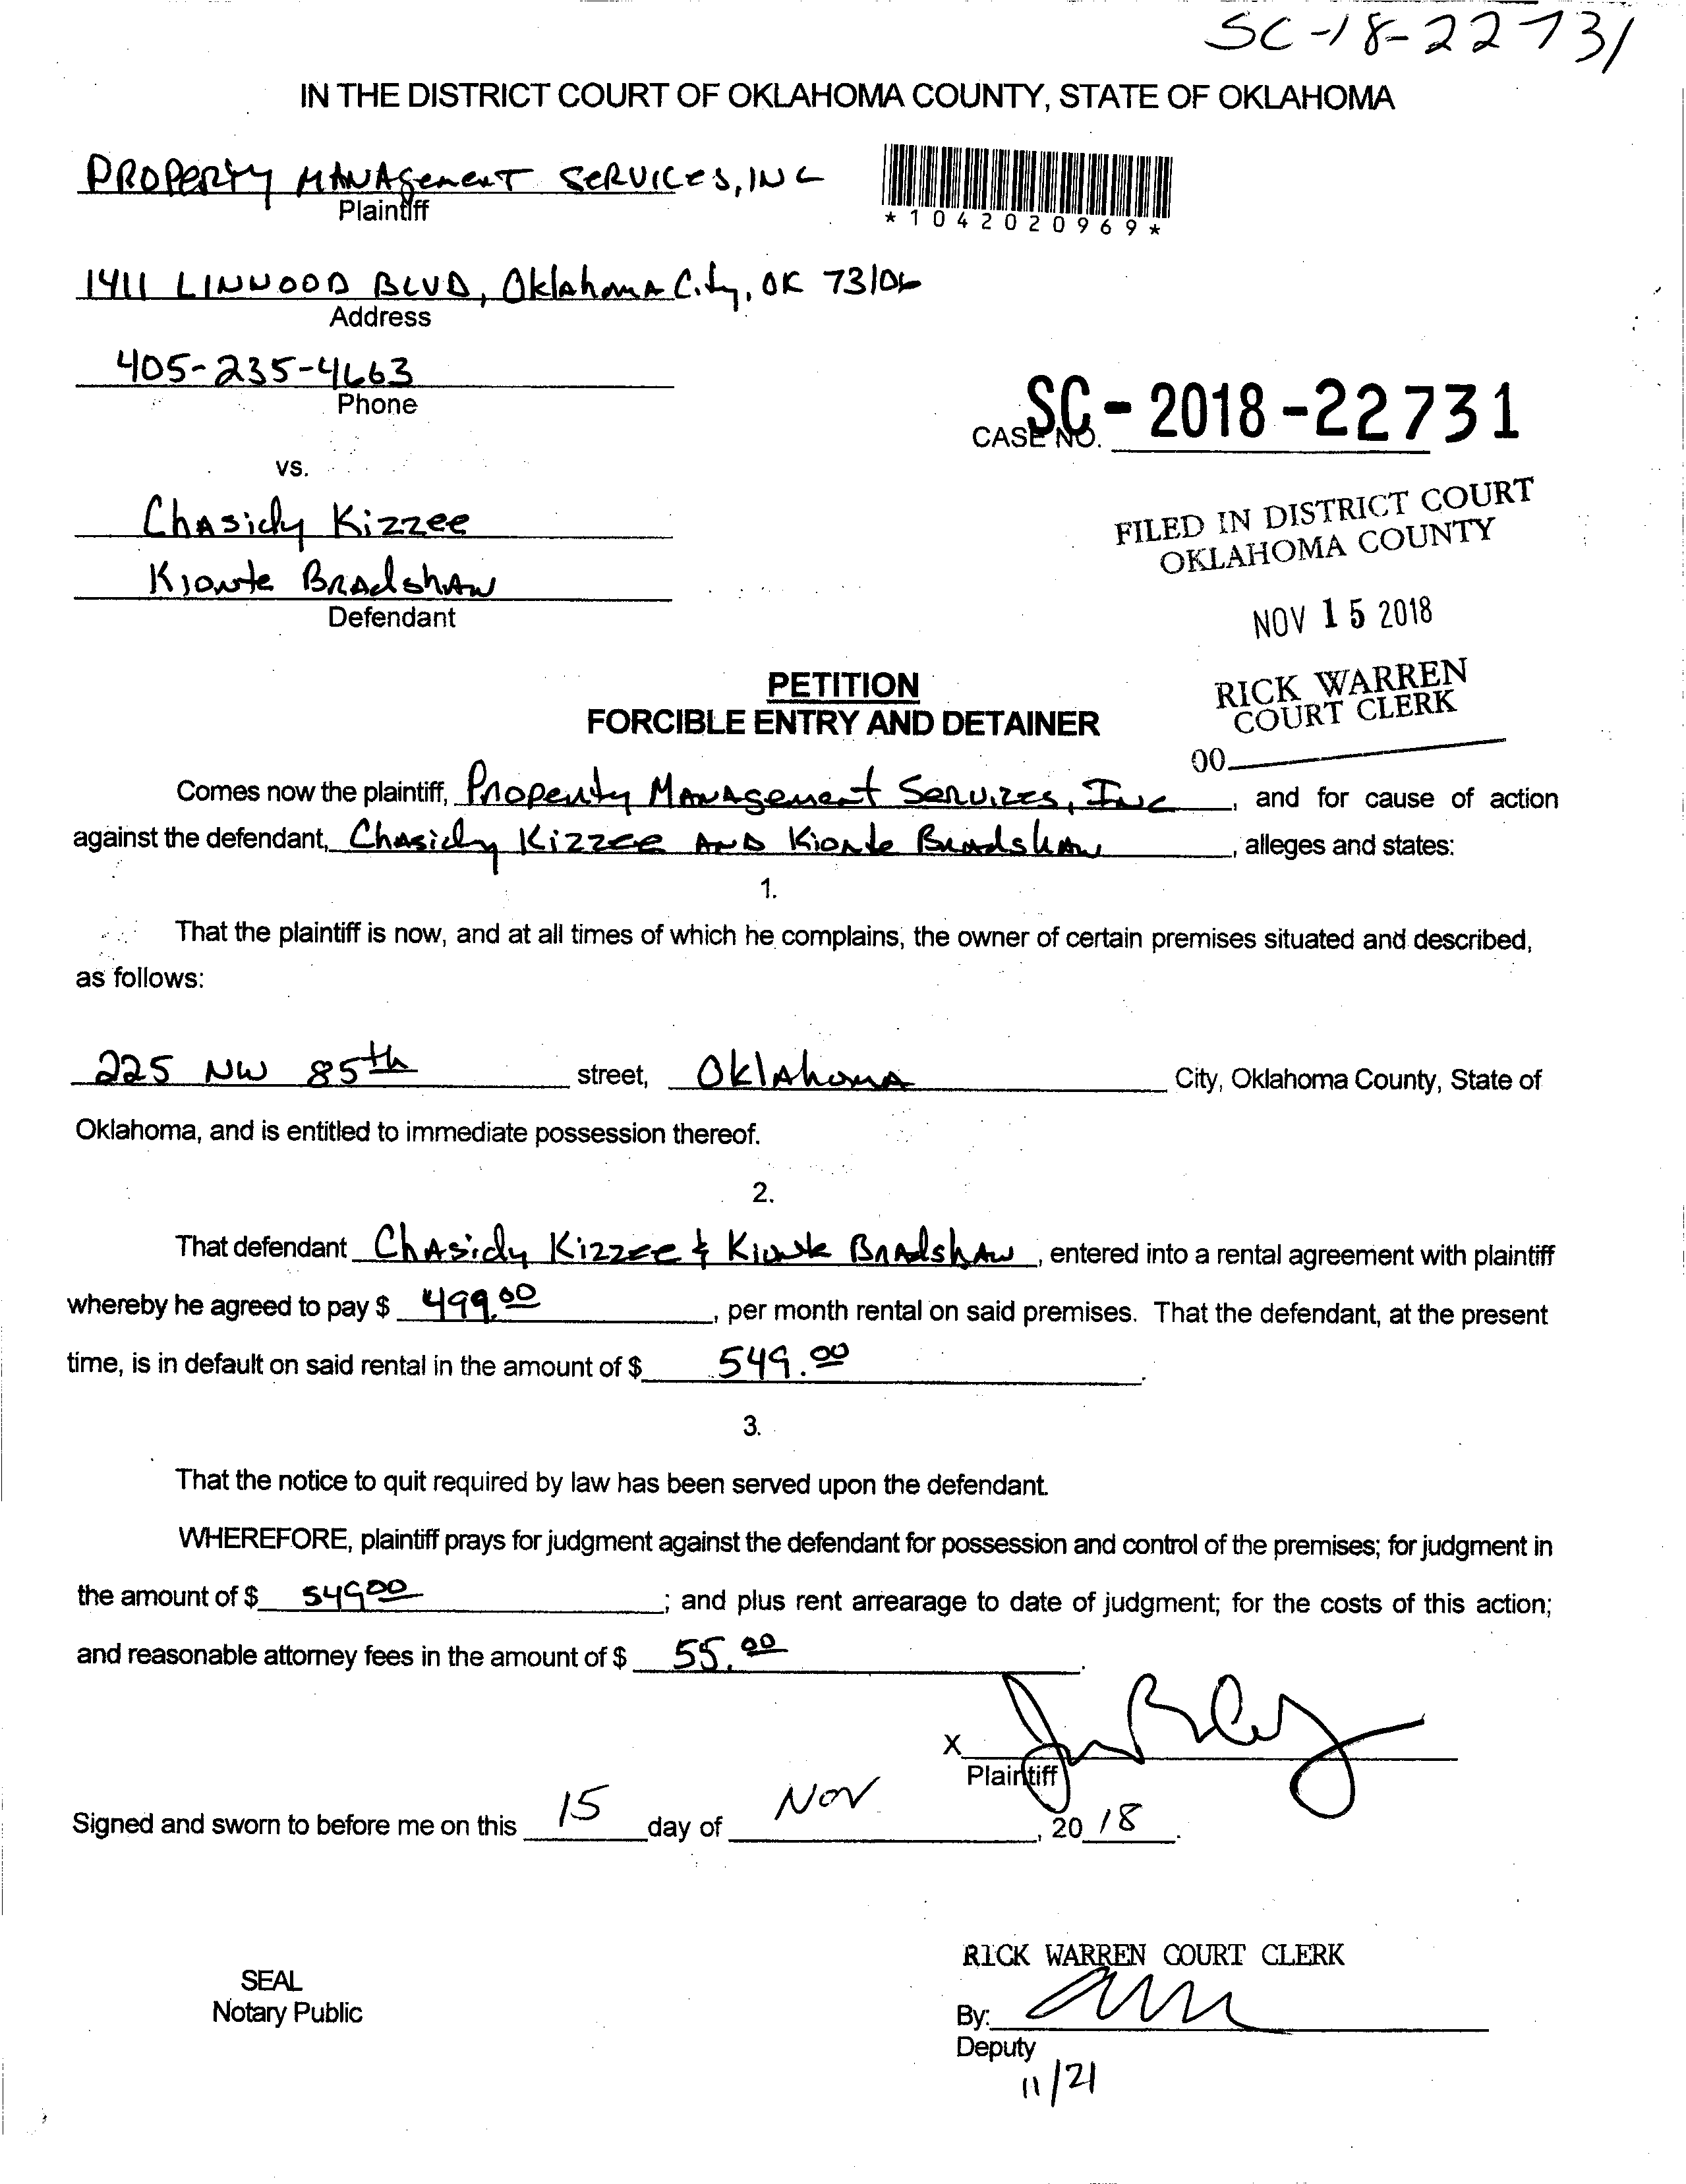 SC-18-22731
IN THE DISTRICT COURT OF OKLAHOMA COUNTY, STATE OF OKLAHOMA
PROPERTY MANAGEMENT SERVICES, INC
Plaintiff
*1042020969*
1411 LINWOOD BLVD, Oklahoma City, OK 73106
Address
405-235-4663
Phone
CASE NO. SC-2018-22731
vs.
Chasidy Kizzee
Kionte Bradshaw
Defendant
FILED IN DISTRICT COURT
OKLAHOMA COUNTY
NOV 15 2018
RICK WARREN
COURT CLERK
00
PETITION
FORCIBLE ENTRY AND DETAINER
Comes now the plaintiff, Property Management Services, Inc, and for cause of action
against the defendant, Chasidy Kizzee AND Kionte Bradshaw, alleges and states:
1.
That the plaintiff is now, and at all times of which he complains, the owner of certain premises situated and described,
as follows:
225 NW 85th street, Oklahoma City, Oklahoma County, State of
Oklahoma, and is entitled to immediate possession thereof.
2.
That defendant Chasidy Kizzee & Kionte Bradshaw, entered into a rental agreement with plaintiff
whereby he agreed to pay $ 499.00, per month rental on said premises. That the defendant, at the present
time, is in default on said rental in the amount of $ 549.00.
3.
That the notice to quit required by law has been served upon the defendant.
WHEREFORE, plaintiff prays for judgment against the defendant for possession and control of the premises; for judgment in
the amount of $ 549.00; and plus rent arrearage to date of judgment; for the costs of this action;
and reasonable attorney fees in the amount of $ 55.00.
X
Plaintiff
Signed and sworn to before me on this 15 day of Nov, 20 18.
RICK WARREN COURT CLERK
SEAL
Notary Public
By:
Deputy
11/21